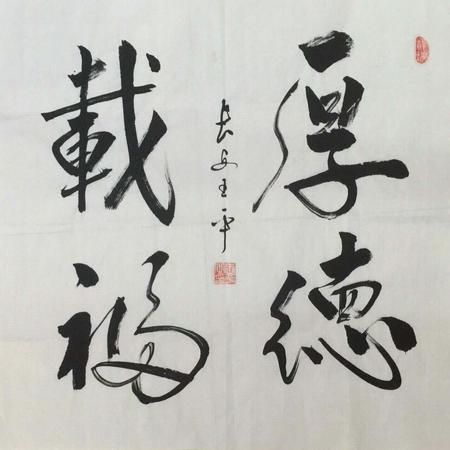 厚德
載福
长安王平